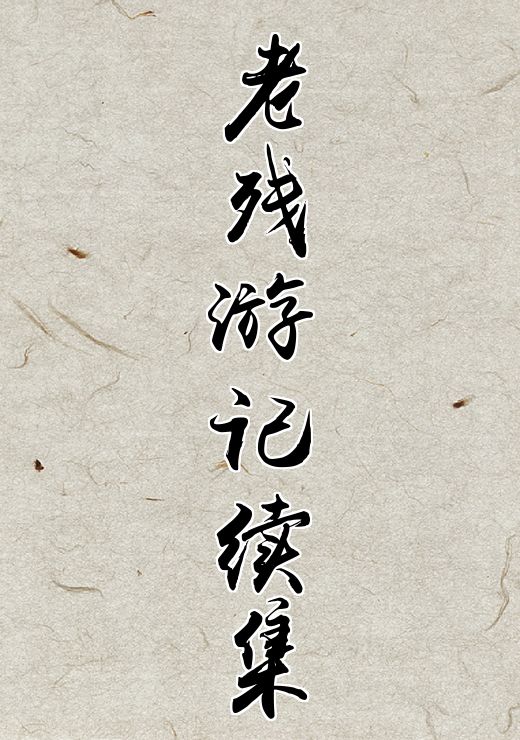 老残游记续集